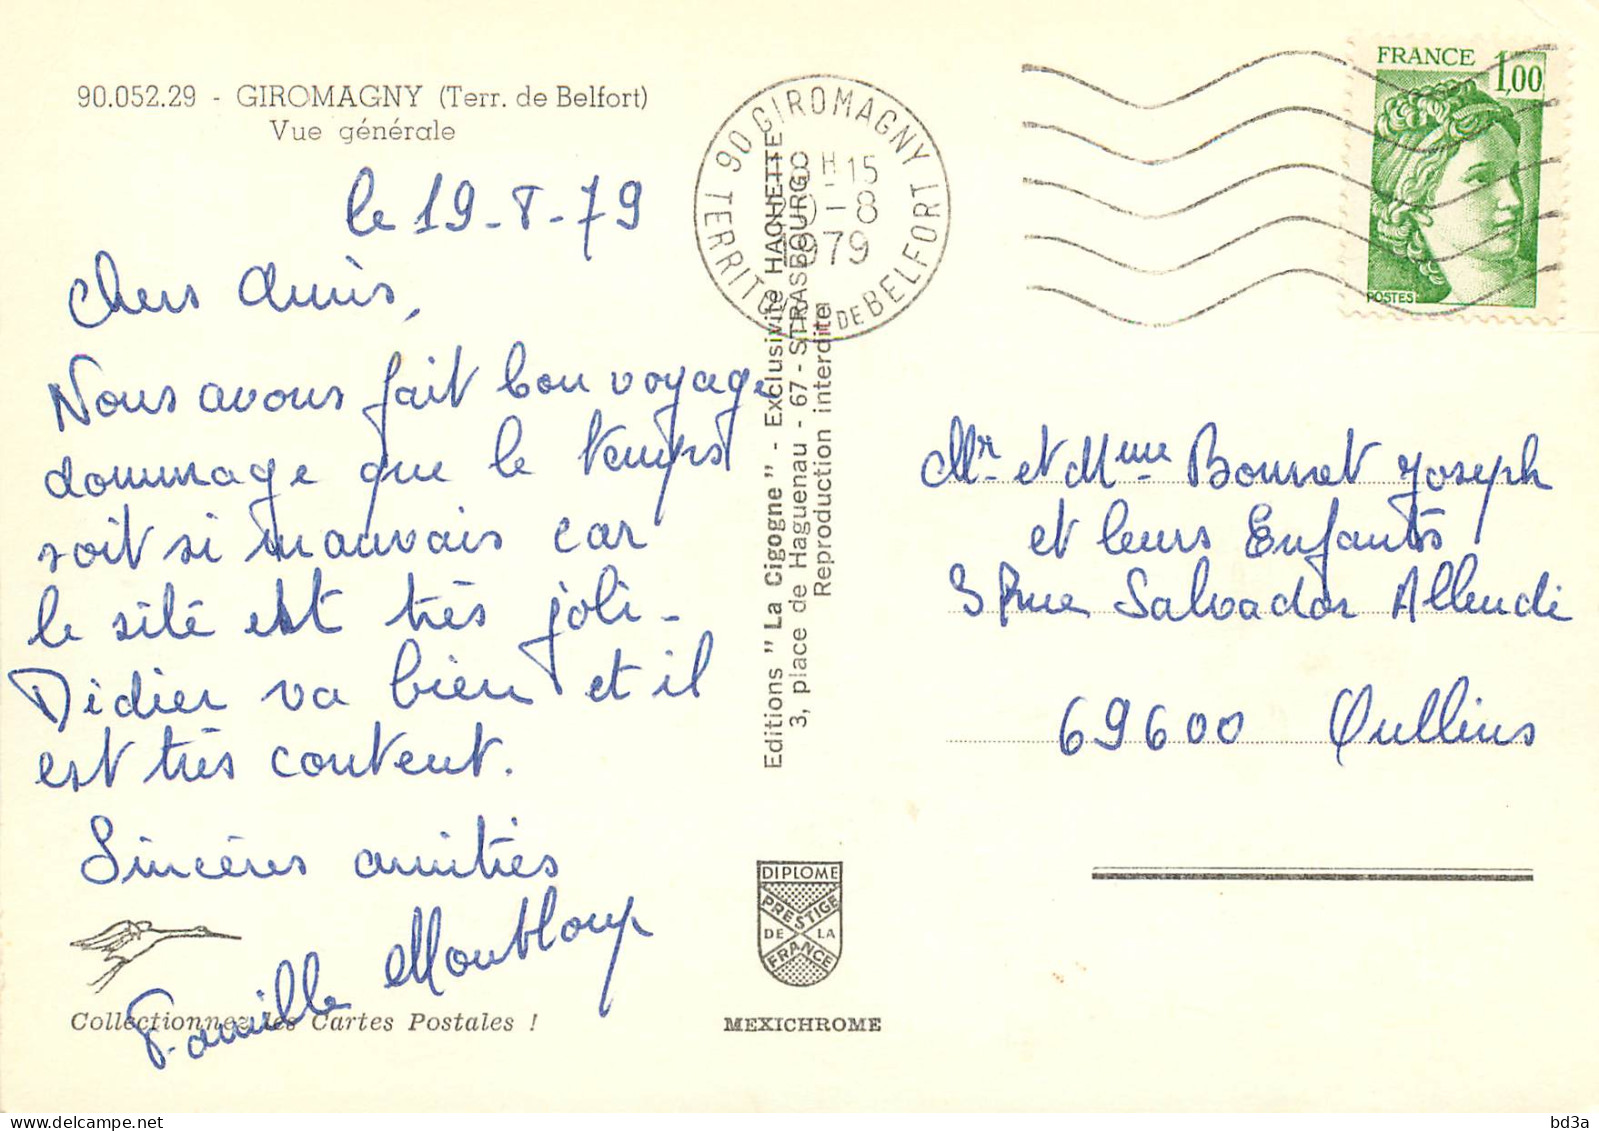 90.052.29 - GIROMAGNY (Terr. de Belfort)
Vue générale
le 19-8-79
Chers Amis,
Nous avons fait bon voyage
dommage que le temps
soit si mauvais car
le site est très joli-
Didier va bien et il
est très content.
Sincères amitiés
Famille Montloup
Collectionnez les Cartes Postales !
90 GIROMAGNY
H 15
-8
1979
TERRIT DE BELFORT
Editions " La Cigogne " - Exclusivité HACHETTE
3, place de Haguenau - 67 - STRASBOURG
Reproduction interdite
DIPLOME
PRESTIGE
DE LA
FRANCE
MEXICHROME
FRANCE 1,00
POSTES
Mr et Mme Bonnet Joseph
et leurs Enfants
rue Salvador Allendé
69600 Oullins
bd3a